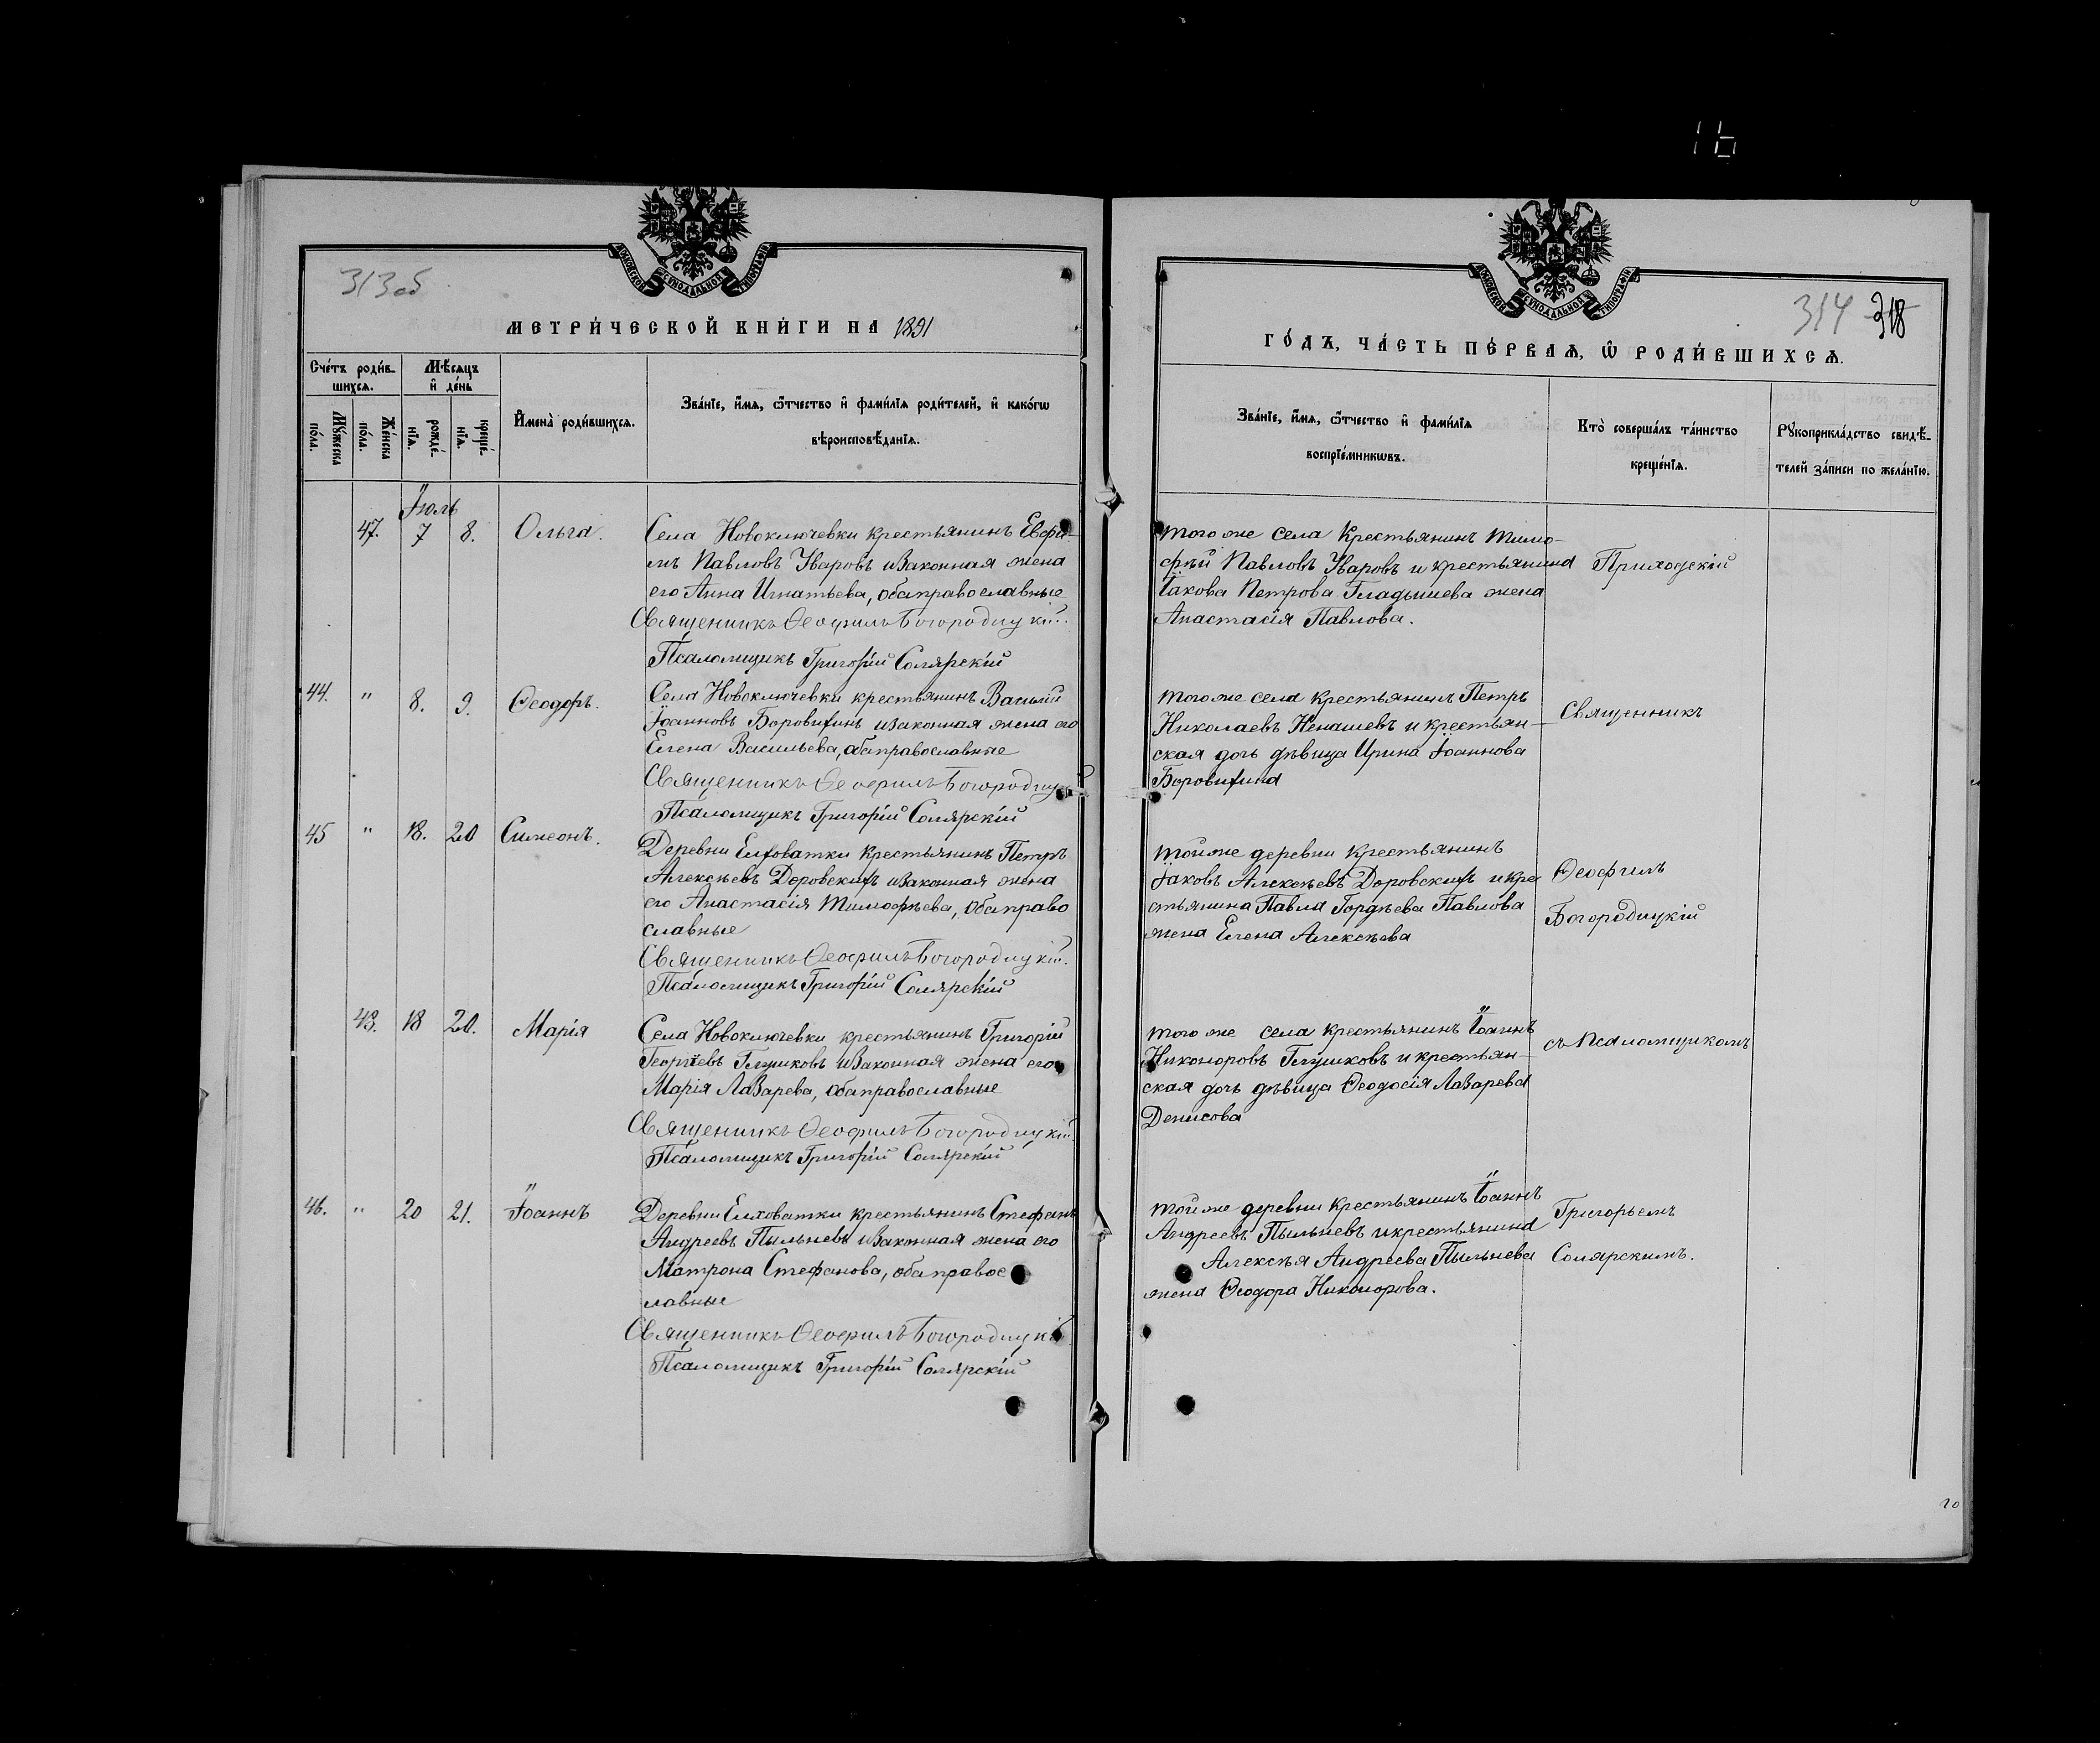 16
МОСКОВСКОЙ СѴНОДАЛЬНОЙ ТИПОГРАФІИ
313 об
МЕТРИ́ЧЕСКОЙ КНИ́ГИ НА 1891
Сче́тъ роди́в-
шихсѧ.
Мѣ́сяцъ
и҆ де́нь
Мꙋ́жеска
по́ла.
Же́нска
по́ла.
рожде́-
нїѧ.
креще́-
нїѧ.
И҆мена̀ роди́вшихсѧ.
Зва́нїе, и҆́мѧ, ѻ҆́тчество и҆ фами́лїѧ роди́телей, и҆ како́гѡ
вѣроисповѣ́данїѧ.
Іюль
47. 7 8. Ольга. Села Новоключевки крестьянинъ Ефри-
мъ Павловъ Уваровъ и законная жена
его Анна Игнатьева, оба православные
Священникъ Ѳеофилъ Богородицкій.
Псаломщикъ Григорій Солярскій
44. " 8. 9. Ѳеодоръ. Села Новоключевки крестьянинъ Василій
Іоанновъ Боровихинъ и законная жена его
Елена Васильева, оба православные
Священникъ Ѳеофилъ Богородицкій
Псаломщикъ Григорій Солярскій
45 " 18. 20 Симеонъ. Деревни Елховатки крестьянинъ Петръ
Алексѣевъ Доровскихъ и законная жена
его Анастасія Тимофѣева, оба право
славные
Священникъ Ѳеофилъ Богородицкій.
Псаломщикъ Григорій Солярскій
48. 18 20. Марія Села Новоключевки крестьянинъ Григорій
Георгіевъ Глушковъ и законная жена его
Марія Лазарева, оба православные
Священникъ Ѳеофилъ Богородицкій.
Псаломщикъ Григорій Солярскій
46. " 20 21. Іоаннъ Деревни Елховатки крестьянинъ Стефанъ
Андреевъ Пыльневъ и законная жена его
Матрона Стефанова, оба правос
лавные
Священникъ Ѳеофилъ Богородицкій
Псаломщикъ Григорій Солярскій
МОСКОВСКОЙ СѴНОДАЛЬНОЙ ТИПОГРАФІИ
314 318
ГО́ДЪ, ЧА́СТЬ ПЕ́РВАѦ, Ѡ҆ РОДИ́ВШИХСѦ.
Зва́нїе, и҆́мѧ, ѻ҆́тчество и҆ фами́лїѧ
воспрїе́мникѡвъ.
Кто̀ соверша́лъ та́инство
креще́нїѧ.
Рꙋкоприкла́дство свидѣ́-
телей за́писи по жела́нїю.
того же села крестьянинъ Тимо-
фѣй Павловъ Уваровъ и крестьянина
Іакова Петрова Гладышева жена
Анастасія Павлова.
того же села крестьянинъ Петръ
Николаевъ Ненашевъ и крестьян-
ская дочь дѣвица Ирина Іоаннова
Боровихина
той же деревни крестьянинъ
Іаковъ Алексѣевъ Доровскихъ и кре
стьянина Павла Гордѣева Павлова
жена Елена Алексѣева
того же села крестьянинъ Іоаннъ
Никоноровъ Глушковъ и крестьян-
ская дочь дѣвица Ѳеодосія Лазарева
Денисова
той же деревни крестьянинъ Іоаннъ
Андреевъ Пыльневъ и крестьянина
Алексѣя Андреева Пыльнева
жена Ѳеодора Никонорова.
Приходскій
Священникъ
Ѳеофилъ
Богородицкій
съ Псаломщикомъ
Григорьемъ
Солярскимъ.